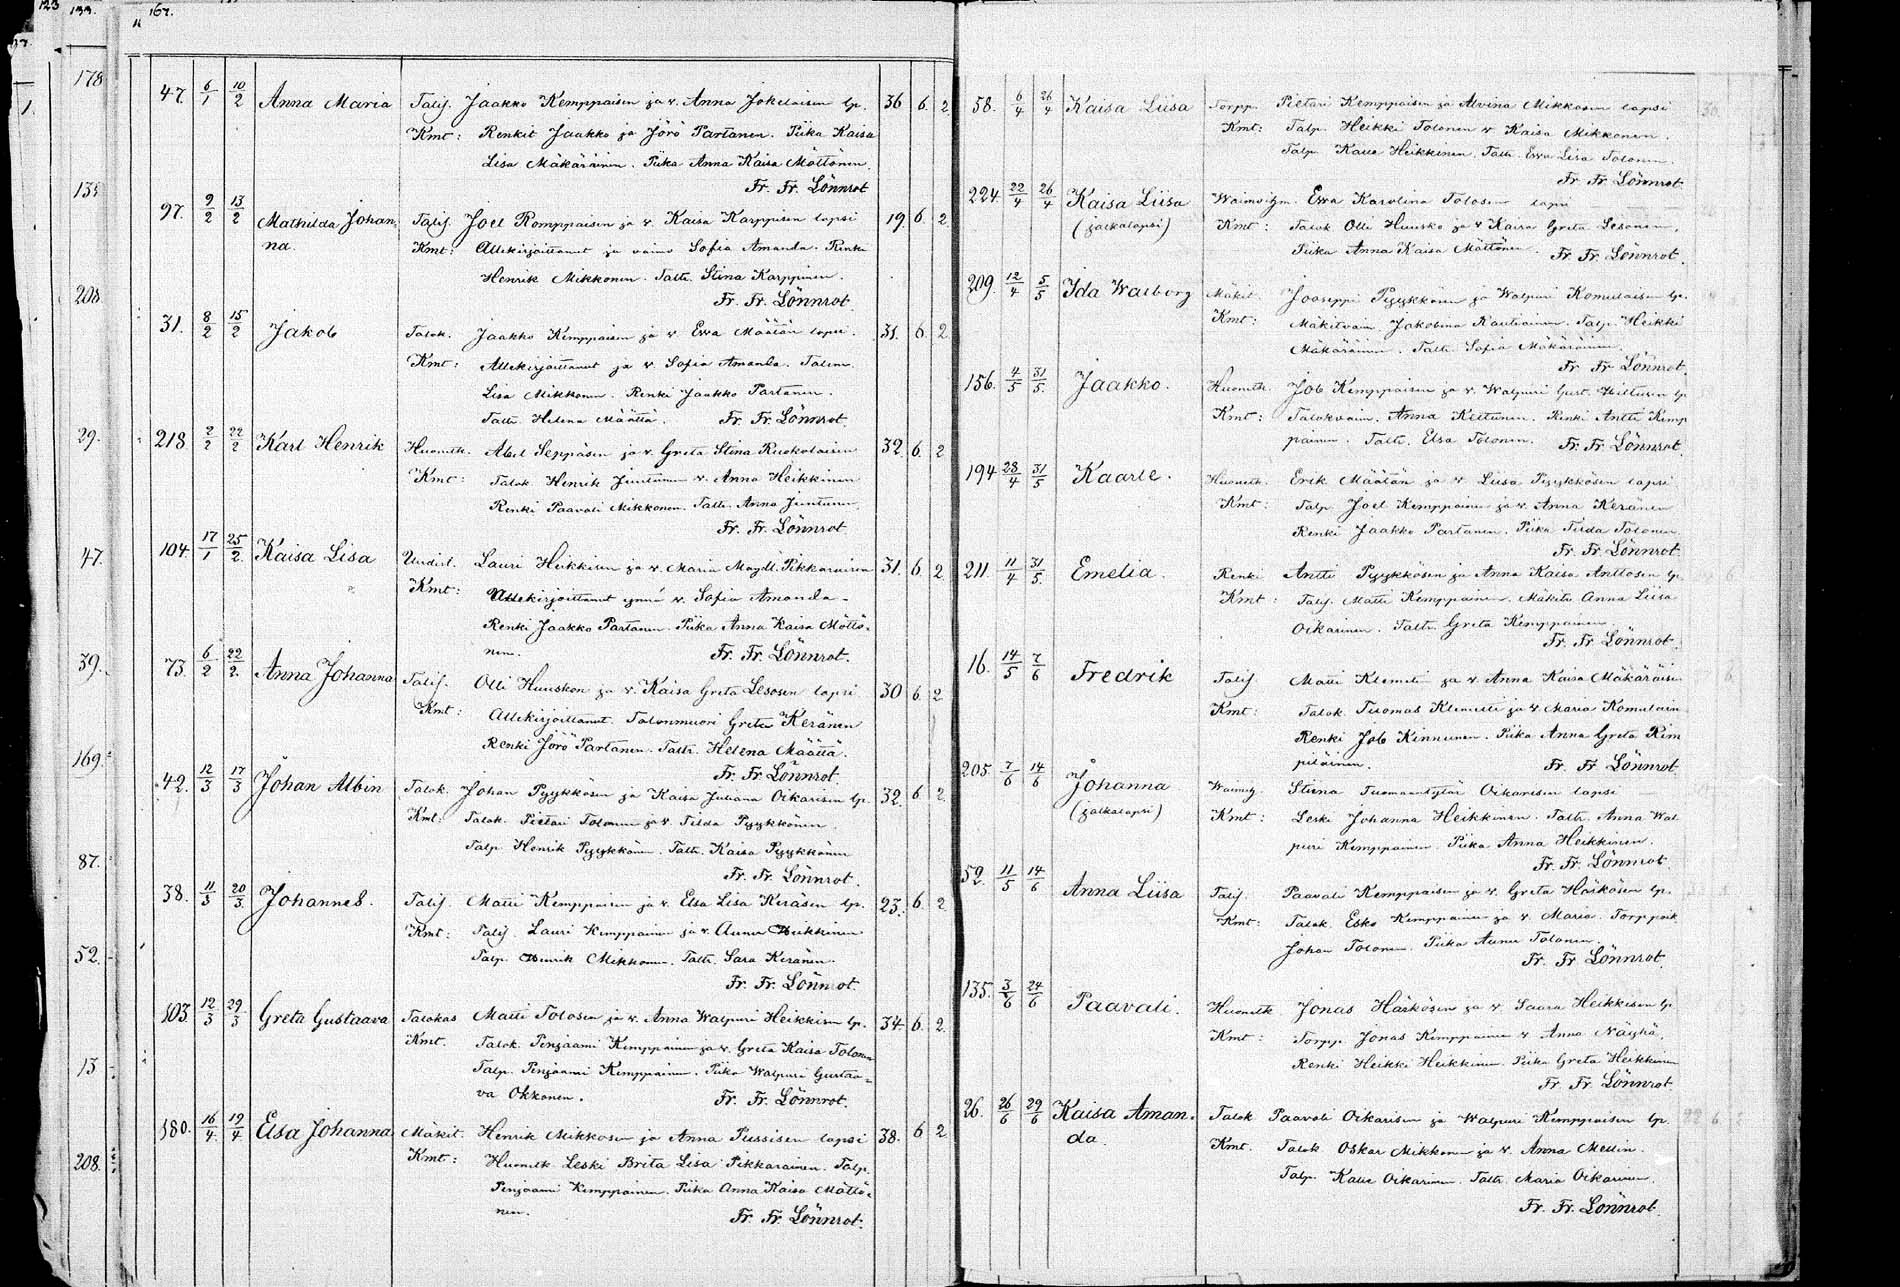 123 133. 11 167.
178
47. 6/1 10/2 Anna Maria Talij. Jaakko Kemppaisen ja v. Anna Jokelaisen lp. 36 6. 2
Kmt: Renkit Jaakko ja Jörö Partanen. Piika Kaisa
Lisa Mäkäräinen. Piika Anna Kaisa Möttönen.
Fr. Fr. Lönnrot
135
97. 9/2 13/2 Mathilda Johan- Talij. Joel Romppaisen ja v. Kaisa Karppisen lapsi 19. 6. 2
na. Kmt: Allekirjoittanut ja vaimo Sofia Amanda. Renki
Henrik Mikkonen. Taltr. Stina Karppinen.
Fr. Fr. Lönnrot
208
31. 8/2 15/2 Jakob Talok. Jaakko Kemppaisen ja v. Ewa Määtän lapsi. 31. 6. 2
Kmt: Allekirjoittanut ja v. Sofia Amanda. Talem.
Lisa Mikkonen. Renki Jaakko Partanen.
Taltr. Helena Määttä. Fr. Fr. Lönnrot.
29.
218. 2/2 22/2 Karl Henrik Huonelk. Abel Seppäsen ja v. Greta Stina Ruokolaisen 32. 6. 2
Kmt: Talok Henrik Juntunen v. Anna Heikkinen
Renki Paavali Mikkonen. Taltr. Anna Juntunen.
Fr. Fr. Lönnrot
47.
104. 17/1 25/2 Kaisa Lisa Uudist. Lauri Heikkisen ja v. Maria Magdl. Pikkaraisen 31. 6. 2
Kmt: Allekirjoittanut ynnä v. Sofia Amanda-
Renki Jaakko Partanen. Piika Anna Kaisa Möttö-
nen. Fr. Fr. Lönnrot.
39.
73. 6/2 22/2. Anna Johanna Talij. Olli Huuskon ja v. Kaisa Greta Lesosen lapsi 30 6. 2
Kmt: Allekirjoittanut. Talonmuori Greta Keränen
Renki Jörö Partanen. Taltr. Helena Määttä.
Fr. Fr. Lönnrot
169.
42. 12/3 17/3 Johan Albin Talok. Johan Pyykkösen ja Kaisa Juliana Oikarisen lp. 32. 6 2
Kmt: Talok. Pietari Tolonen ja v. Tilda Pyykkönen.
Talp Henrik Pyykkönen. Taltr. Kaisa Pyykkönen
Fr. Fr. Lönnrot.
87.
38. 11/3 20/3 Johannes. Talij. Matti Kemppaisen ja v. Elsa Lisa Keräsen lp. 23. 6 2
Kmt: Talij. Lauri Kemppainen ja v. Aunu Heikkinen
Talp. Henrik Mikkonen. Taltr. Sara Keränen.
Fr. Fr. Lönnrot.
52.
103. 12/3 29/3 Greta Gustaava Talokas Matti Tolosen ja v. Anna Walpuri Heikkisen lp. 34 6. 2
Kmt. Talok. Penjaami Kemppainen ja v. Greta Kaisa Tolonen
Talp. Penjaami Kemppainen. Piika Walpuri Gustaa-
va Okkonen. Fr. Fr. Lönnrot.
13
180. 16/4 19/4 Elsa Johanna Mäkit. Henrik Mikkosen ja Anna Pussisen lapsi 38. 6 2
208. Kmt: Huonelk Leski Brita Lisa Pikkarainen. Talp.
Penjaami Kemppainen. Piika Anna Kaisa Möttö-
nen. Fr. Fr. Lönnrot.
58. 6/4 26/4 Kaisa Liisa Torpp. Pietari Kemppaisen ja Alvina Mikkosen lapsi
Kmt: Talp. Heikki Tolonen v. Kaisa Mikkonen.
Talp. Kalle Heikkinen. Taltr. Ewa Lisa Tolonen.
Fr. Fr. Lönnrot.
224. 22/4 26/4 Kaisa Liisa Ewa Karolina Tolosen lapsi
(jalkalapsi) Kmt: Talok Olli Huusko ja v. Kaisa Greta Lesonen.
Piika Anna Kaisa Möttönen. Fr. Fr. Lönnrot.
209. 12/4 5/5 Ida Walborg Mäkit. Jooseppi Pyykkösen ja Walpuri Komulaisen lp.
Kmt: Mäkitvaim. Jakobina Rautiainen. Talp. Heikki
Mäkäräinen. Taltr. Sofia Mäkäräinen.
Fr. Fr. Lönnrot.
156. 4/5 31/5 Jaakko. Huonelk. Job Kemppaisen ja v. Walpuri Gust. Hiltusen lp
Kmt: Talokvaim. Anna Keltunen. Renki Antti Kemp
painen. Taltr. Elsa Tolonen. Fr. Fr. Lönnrot.
194 28/4 31/5 Kaarle. Huonelk. Erik Määtän ja v. Liisa Pyykkösen lapsi
Kmt: Talp. Joel Kemppainen ja v. Anna Keränen
Renki Jaakko Partanen. Piika Tiida Tolonen.
Fr. Fr. Lönnrot.
211. 11/4 31/5 Emelia. Renki Antti Pyykkösen ja Anna Kaisa Anttosen lp.
Kmt: Talij. Matti Kemppainen. Mäkitr. Anna Liisa
Oikarinen. Taltr. Greta Kemppainen.
Fr. Fr. Lönnrot.
16. 14/5 7/6 Fredrik Talij Matti Klemeti ja v. Anna Kaisa Mäkäräisen
Kmt: Talok. Tuomas Klemetti ja v. Maria Komulain
Renki Job Kinnunen. Piika Anna Greta Rim
piläinen. Fr. Fr. Lönnrot
205. 7/6 14/6 Johanna Stiina Tuomaantytär Oikarisen lapsi
(jalkalapsi) Kmt: Leski Johanna Heikkinen. Taltr. Anna Wal
puri Kemppainen. Piika Anna Heikkinen.
Fr. Fr. Lönnrot.
52. 11/5 14/6 Anna Liisa Talij. Paavali Kemppaisen ja v. Greta Härkösen lp.
Kmt: Talok. Esko Kemppainen ja v. Maria. Torpparik
Johan Tolonen. Piika Aunu Tolonen.
Fr. Fr. Lönnrot.
135. 3/6 24/6 Paavali. Huonelk Jonas Härkösen ja v. Saara Heikkisen lp
Kmt: Torpp. Jonas Kemppainen v. Anna Näyhä.
Renki Heikki Heikkinen. Piika Greta Heikkinen
Fr. Fr. Lönnrot.
26. 26/6 29/6 Kaisa Aman- Talok Paavali Oikarisen ja Walpuri Kemppaisen lp.
da. Kmt. Talok Oskar Mikkonen ja v. Anna Mellin.
Talp. Kalle Oikarinen. Taltr. Maria Oikarinen.
Fr. Fr. Lönnrot.